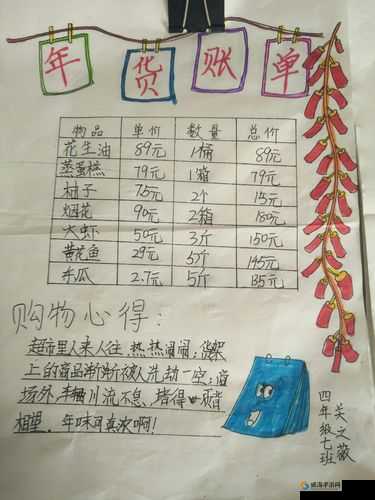 年货账单
物品 单价 数量 总价
花生油 89元 1桶 89元
蒸蛋糕 79元 1箱 79元
柚子 7.5元 2个 15元
烟花 90元 2箱 180元
大虾 50元 3斤 150元
黄花鱼 29元 5斤 145元
冬瓜 2.7元 5斤 13.5元
购物心得:
超市里人来人往,热热闹闹,货架
上的商品渐渐被人洗劫一空;商
场外,车辆川流不息,堵得一塌
相里。年味可真浓啊!
四年级七班
关之敬
威海手游网